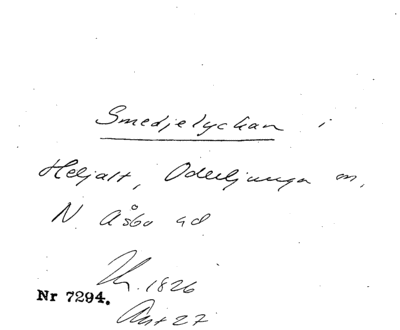 Smedjelyckan i
Heljalt, Oderljunga sn,
N. Åsbo hd
1826
Nr 7294.
27